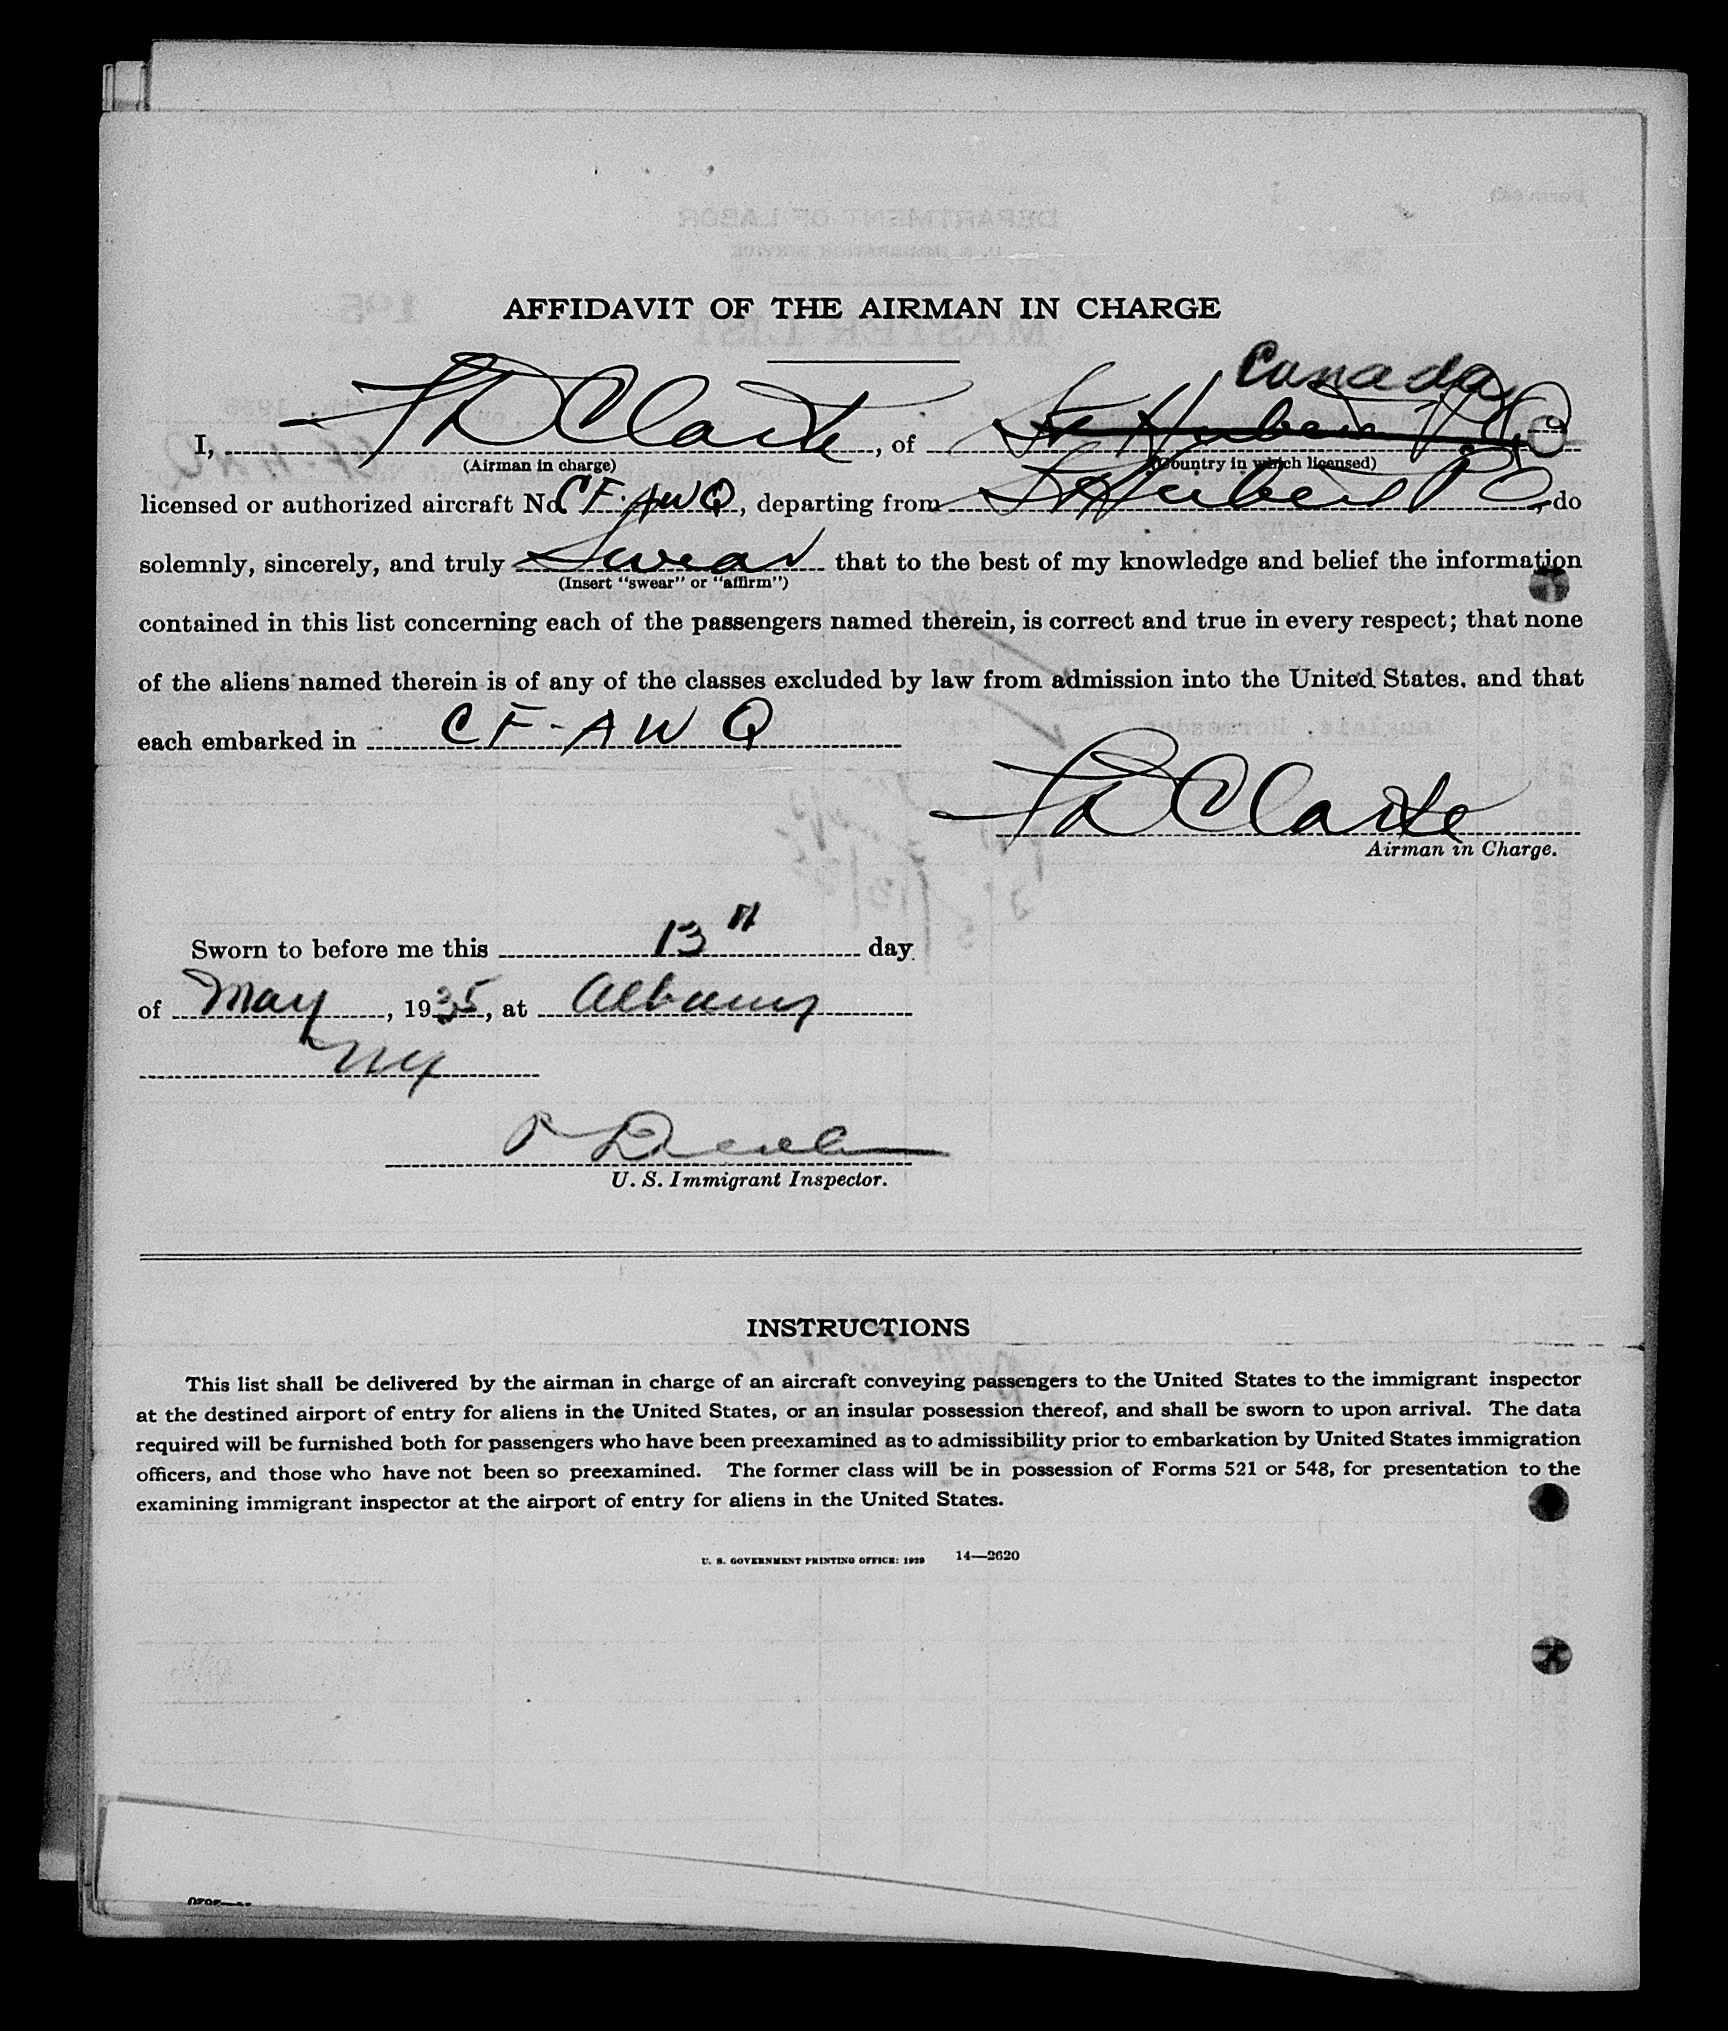 AFFIDAVIT OF THE AIRMAN IN CHARGE
Canada
I, Clarke, of St Hubert P.Q.
(Airman in charge) (Country in which licensed)
licensed or authorized aircraft No. CF-AWQ, departing from St Hubert P Q, do
solemnly, sincerely, and truly Swear that to the best of my knowledge and belief the information
(Insert "swear" or "affirm")
contained in this list concerning each of the passengers named therein, is correct and true in every respect; that none
of the aliens named therein is of any of the classes excluded by law from admission into the United States, and that
each embarked in CF-AWQ
Clarke
Airman in Charge.
Sworn to before me this 13th day
of May, 1935, at Albany
NY
U. S. Immigrant Inspector.
INSTRUCTIONS
This list shall be delivered by the airman in charge of an aircraft conveying passengers to the United States to the immigrant inspector
at the destined airport of entry for aliens in the United States, or an insular possession thereof, and shall be sworn to upon arrival. The data
required will be furnished both for passengers who have been preexamined as to admissibility prior to embarkation by United States immigration
officers, and those who have not been so preexamined. The former class will be in possession of Forms 521 or 548, for presentation to the
examining immigrant inspector at the airport of entry for aliens in the United States.
U. S. GOVERNMENT PRINTING OFFICE: 1929 14—2620